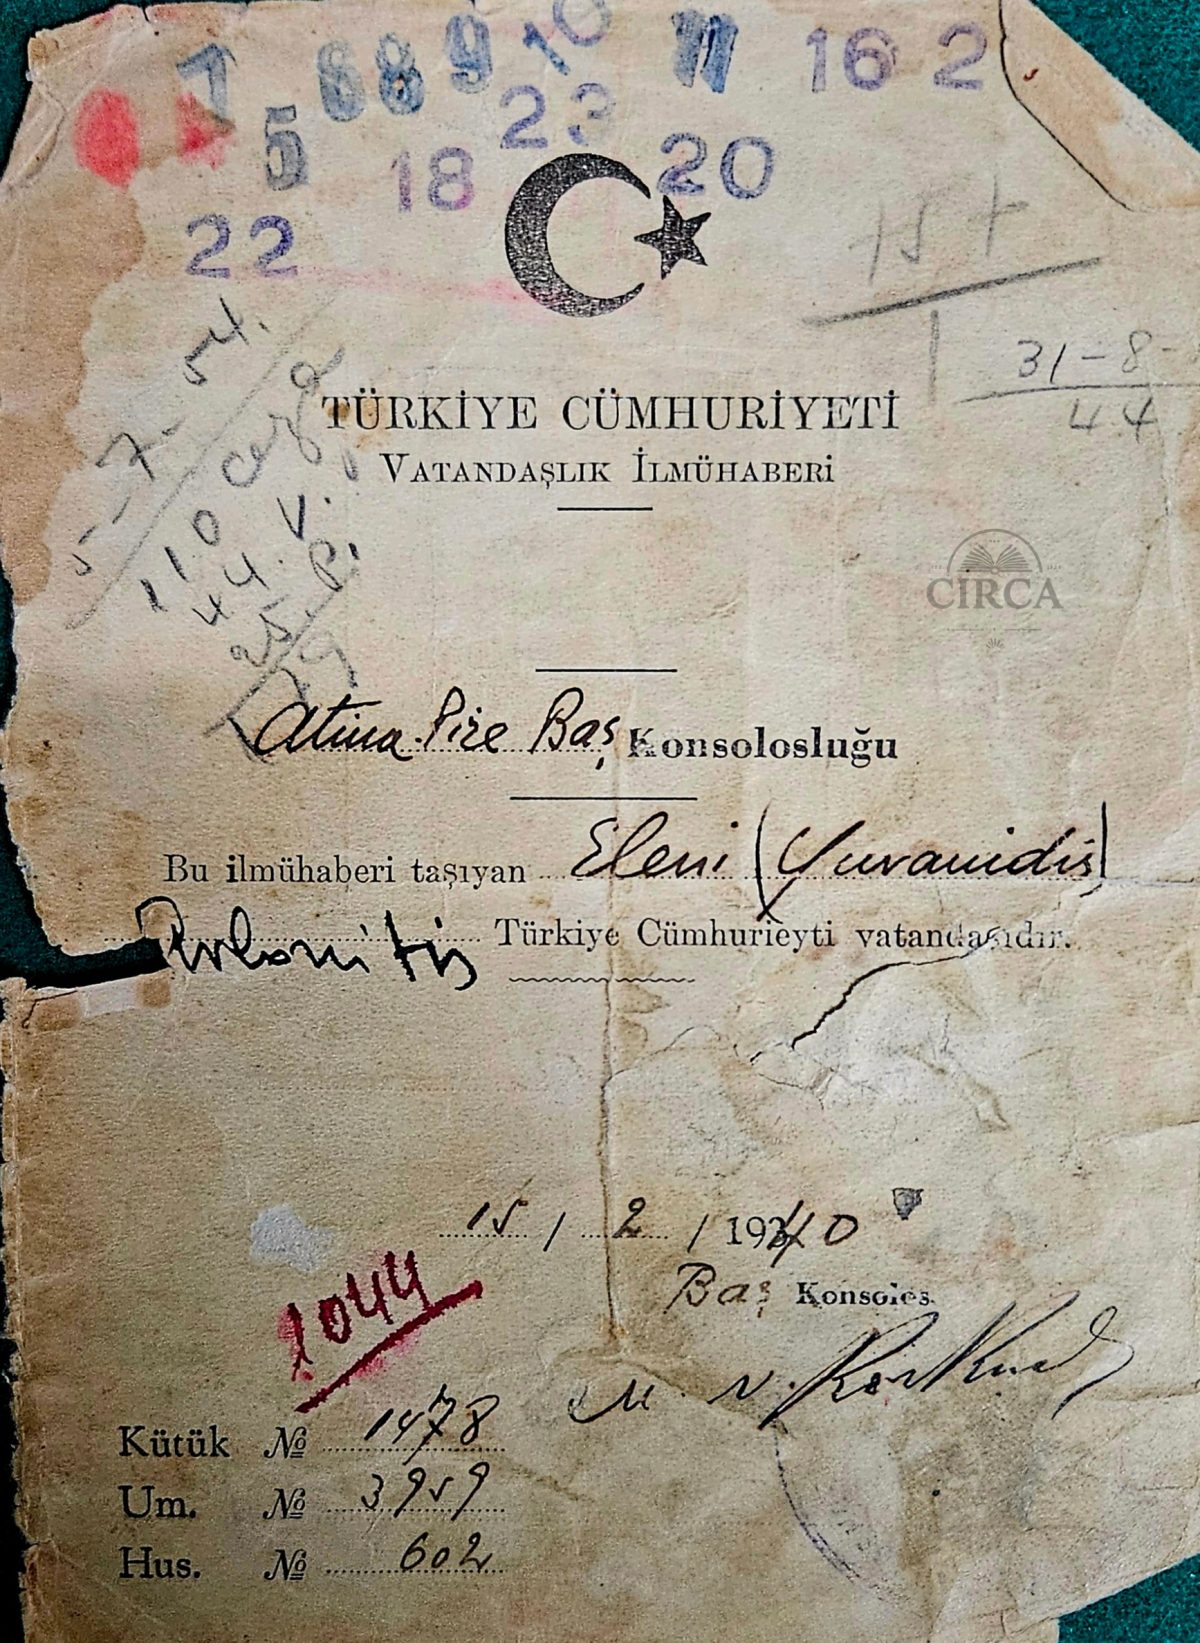 7 68 8 9 10 11 16 2
5 18 23 20
22
15 +
1
31-8-
44
5-7-54.
110 ceza
44. V.
25. P.
TÜRKİYE CÜMHURİYETİ
VATANDAŞLIK İLMÜHABERİ
CIRCA
Atina-Pire Baş Konsolosluğu
Bu ilmühaberi taşıyan Eleni (Yuvanidis)
Türkiye Cümhurieyti vatandaşıdır.
15 / 2 / 1940
Baş Konsolos
1044
M. N. Korkud
Kütük № 1478
Um. № 3959
Hus. № 602